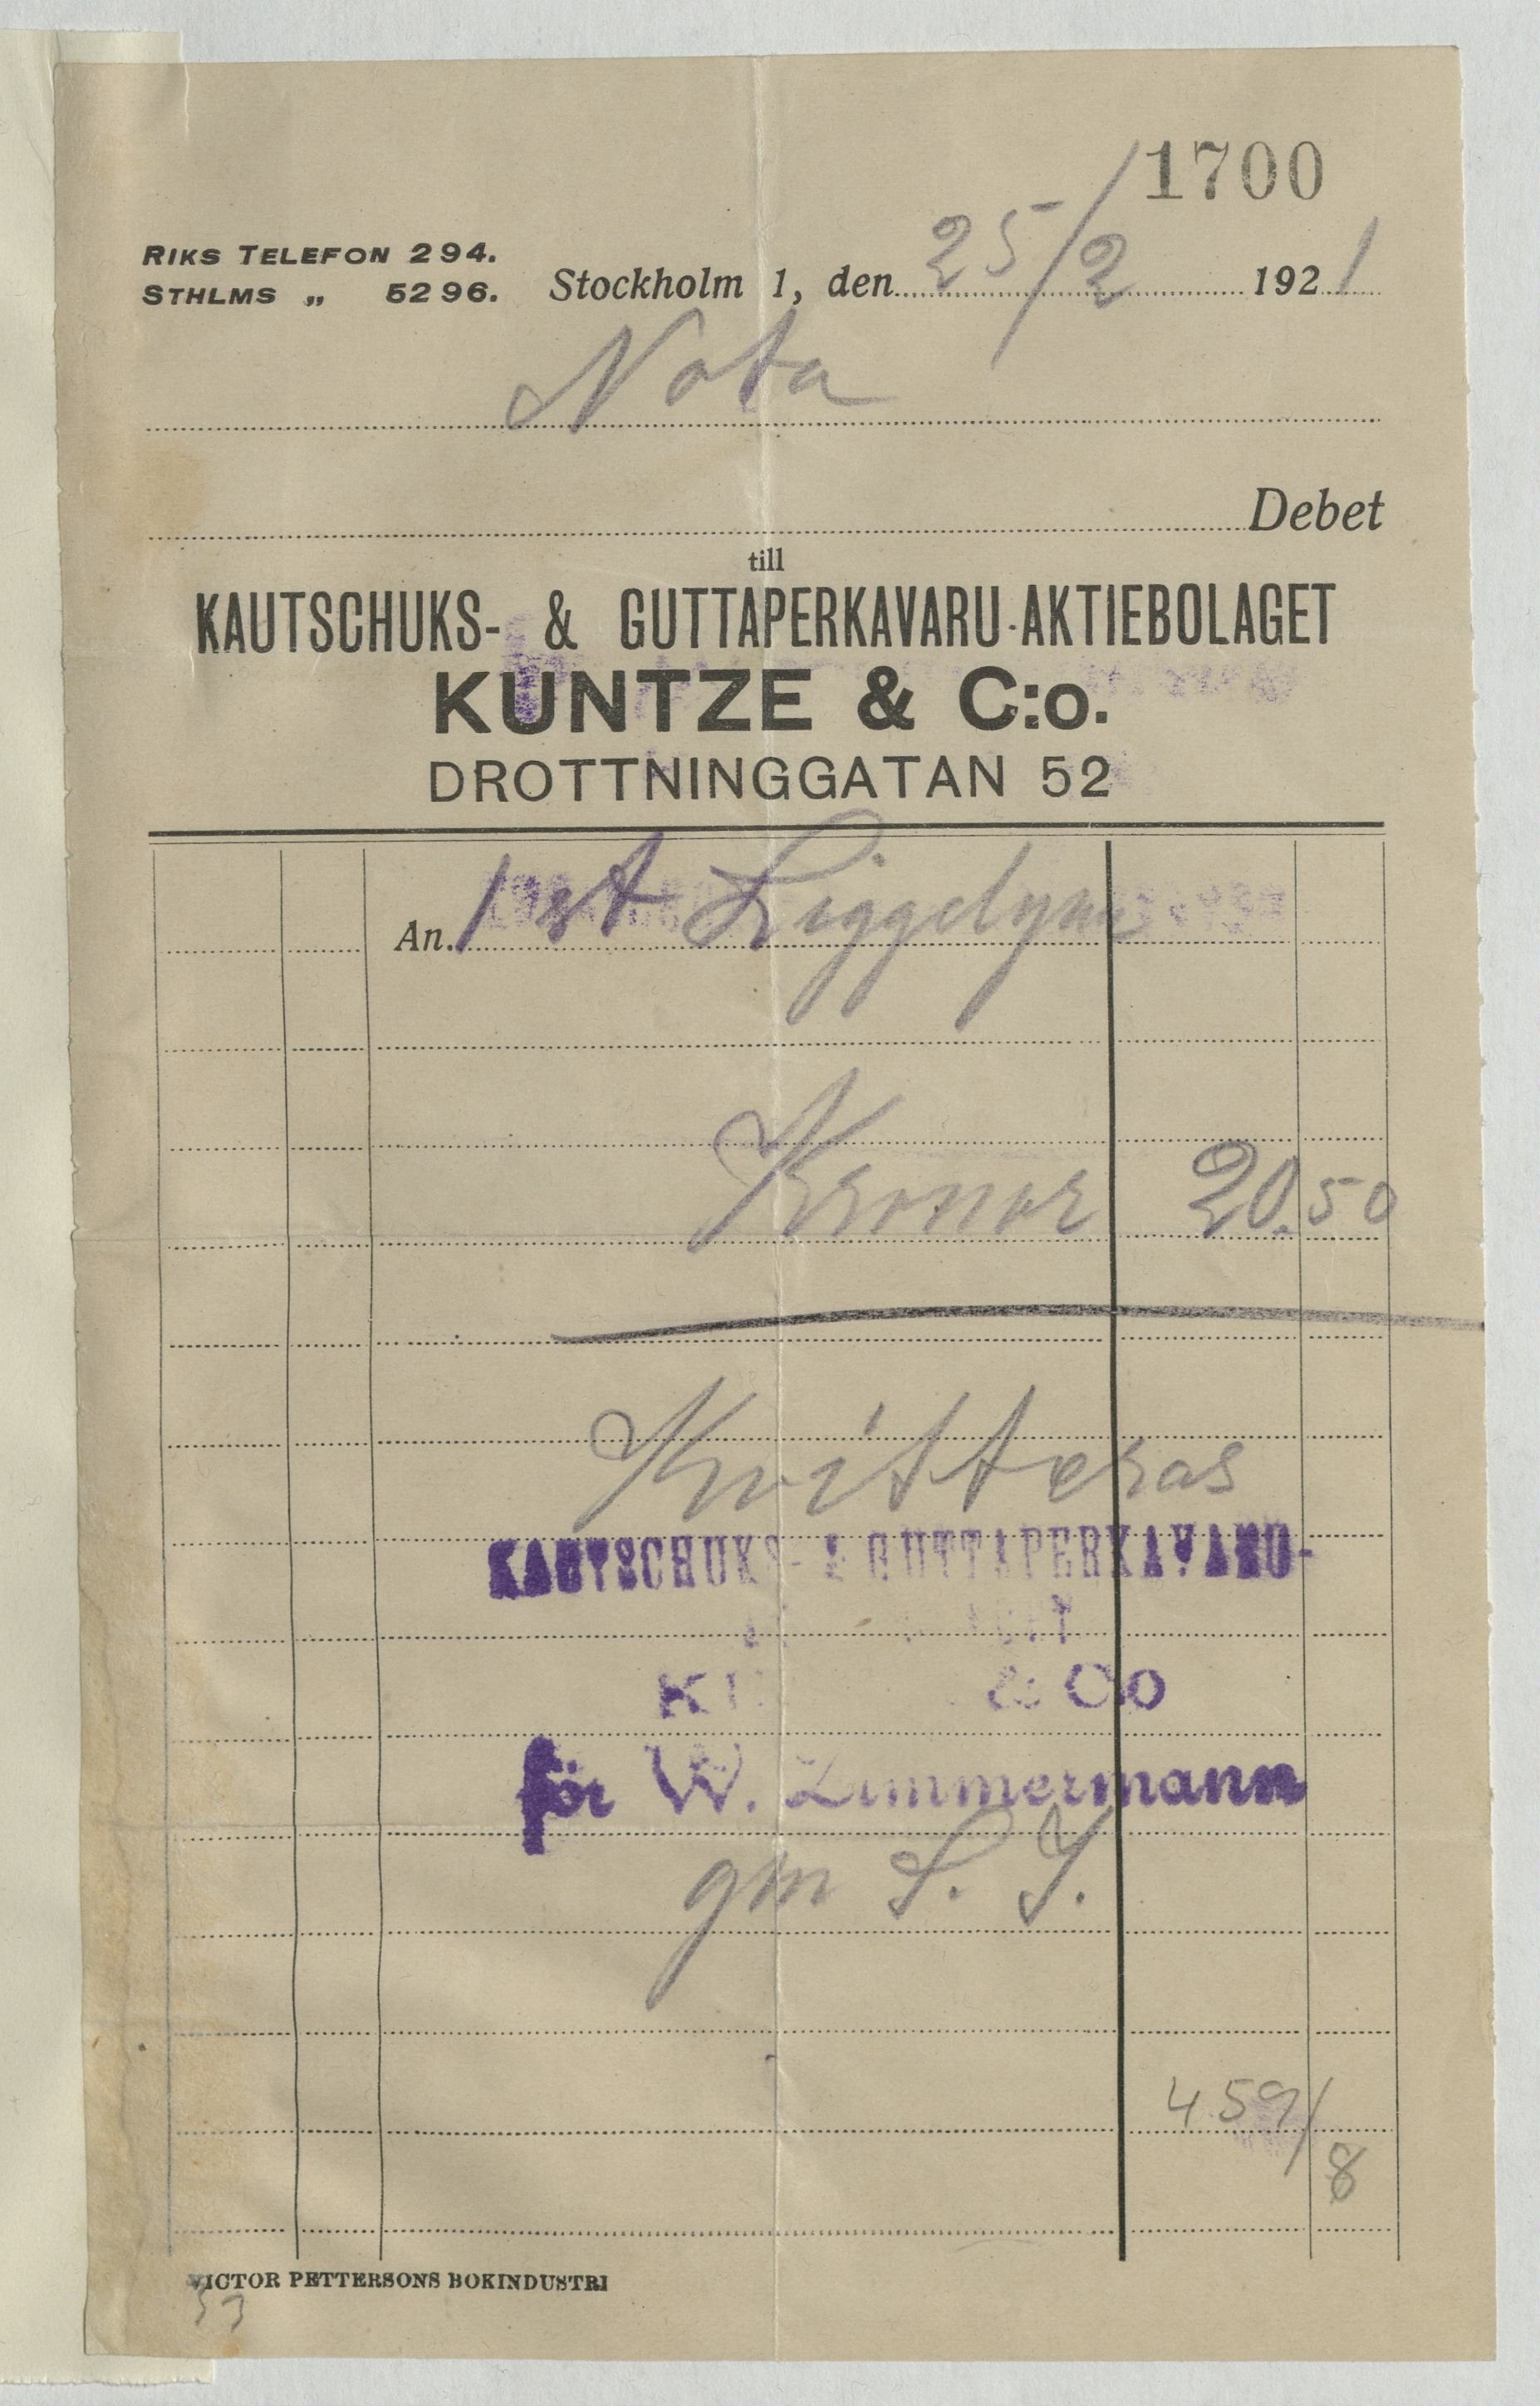 1700
RIKS TELEFON 294.
STHLMS „ 5296.
Stockholm 1, den 25/2 1921
Nota
Debet
till
KAUTSCHUKS- & GUTTAPERKAVARU-AKTIEBOLAGET
KUNTZE & C:o.
DROTTNINGGATAN 52
An. 1 st Liggdyna
Kronor 20.50
Kvitteras
KAUTSCHUKS- & GUTTAPERKAVARU-
K & Co
för W. Zimmermann
gm
459/8
VICTOR PETTERSONS BOKINDUSTRI